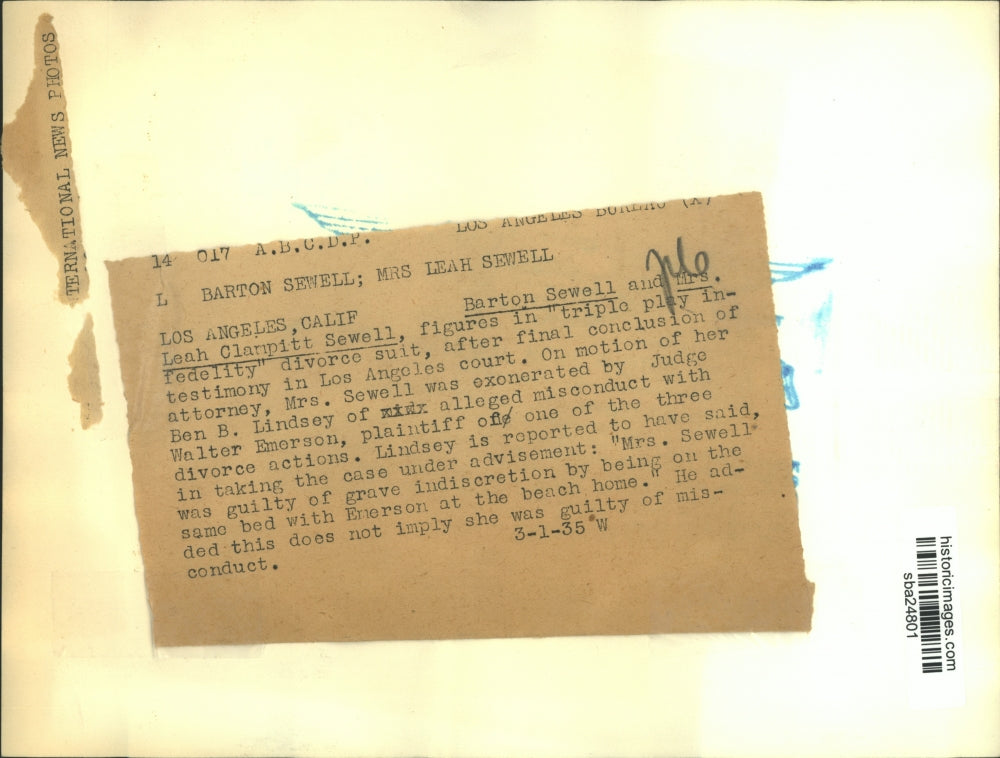 TERNATIONAL NEWS PHOTOS
LOS ANGELES BUREAU (X)
14 017 A.B.C.D.P.
L BARTON SEWELL; MRS LEAH SEWELL
LOS ANGELES, CALIF Barton Sewell and Mrs.
Leah Clampitt Sewell, figures in "triple play in-
fedelity" divorce suit, after final conclusion of
testimony in Los Angeles court. On motion of her
attorney, Mrs. Sewell was exonerated by Judge
Ben B. Lindsey of alleged misconduct with
Walter Emerson, plaintiff of one of the three
divorce actions. Lindsey is reported to have said,
in taking the case under advisement: "Mrs. Sewell
was guilty of grave indiscretion by being on the
same bed with Emerson at the beach home." He ad-
ded this does not imply she was guilty of mis-
conduct. 3-1-35 W
historicimages.com
sba24801